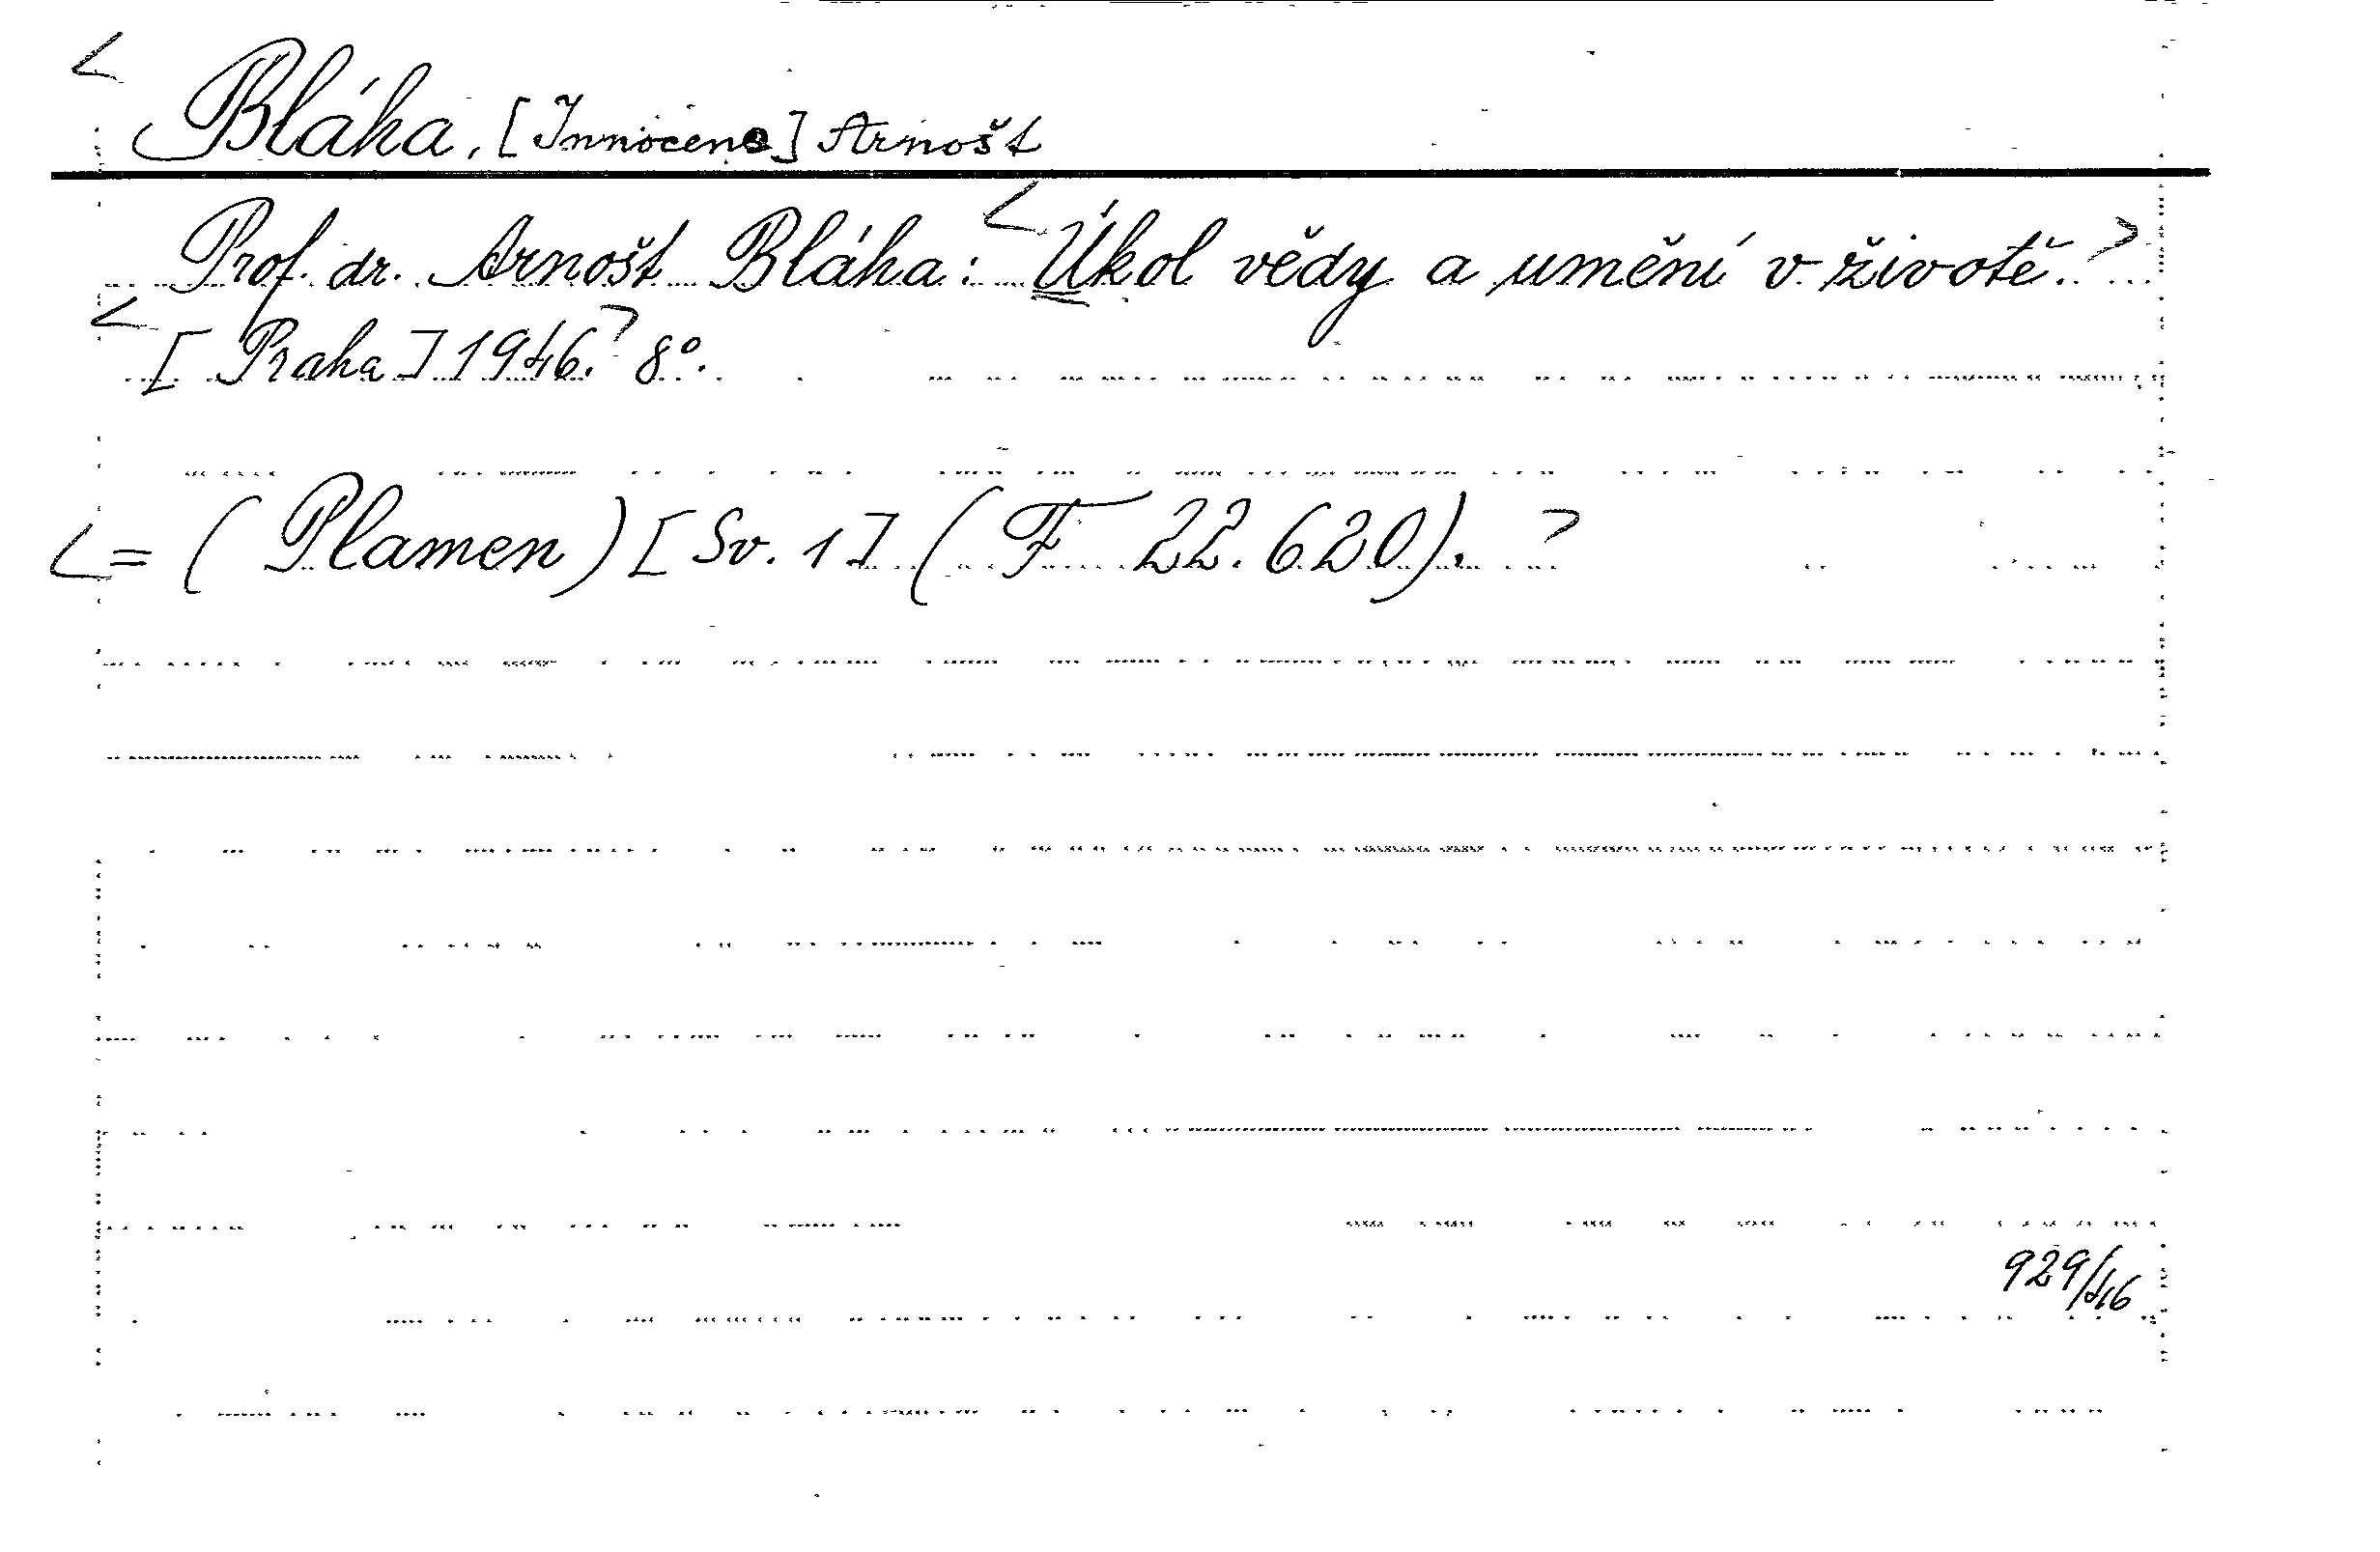 < Bláha, [Innocenc] Arnošt
Prof. dr. Arnošt Bláha: < Úkol vědy a umění v životě. >
< [Praha] 1946. > 8°.
< = (Plamen) [Sv. 1] (F 22.620). >
929/46